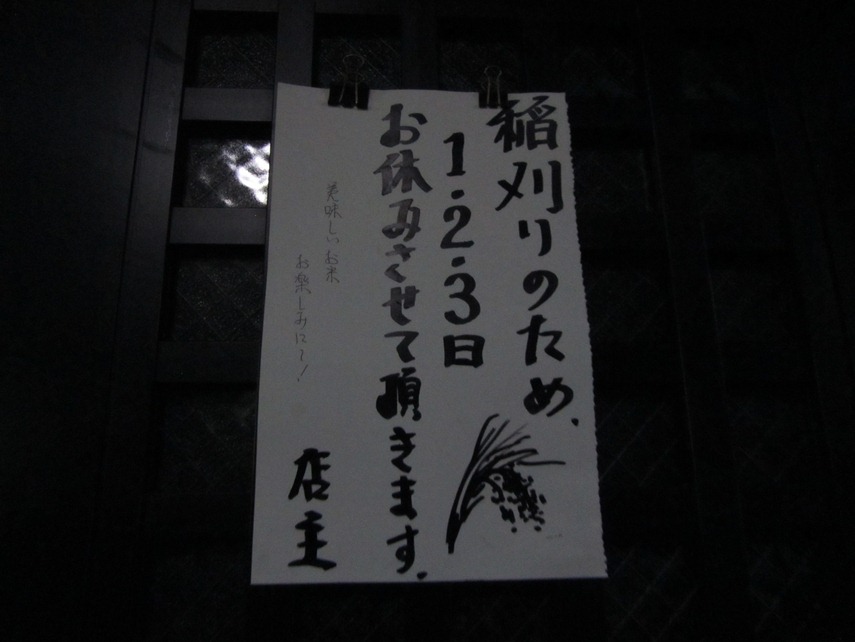 稲刈りのため、
1.2.3日
お休みさせて頂きます。
美味しいお米
お楽しみに〜！
店主